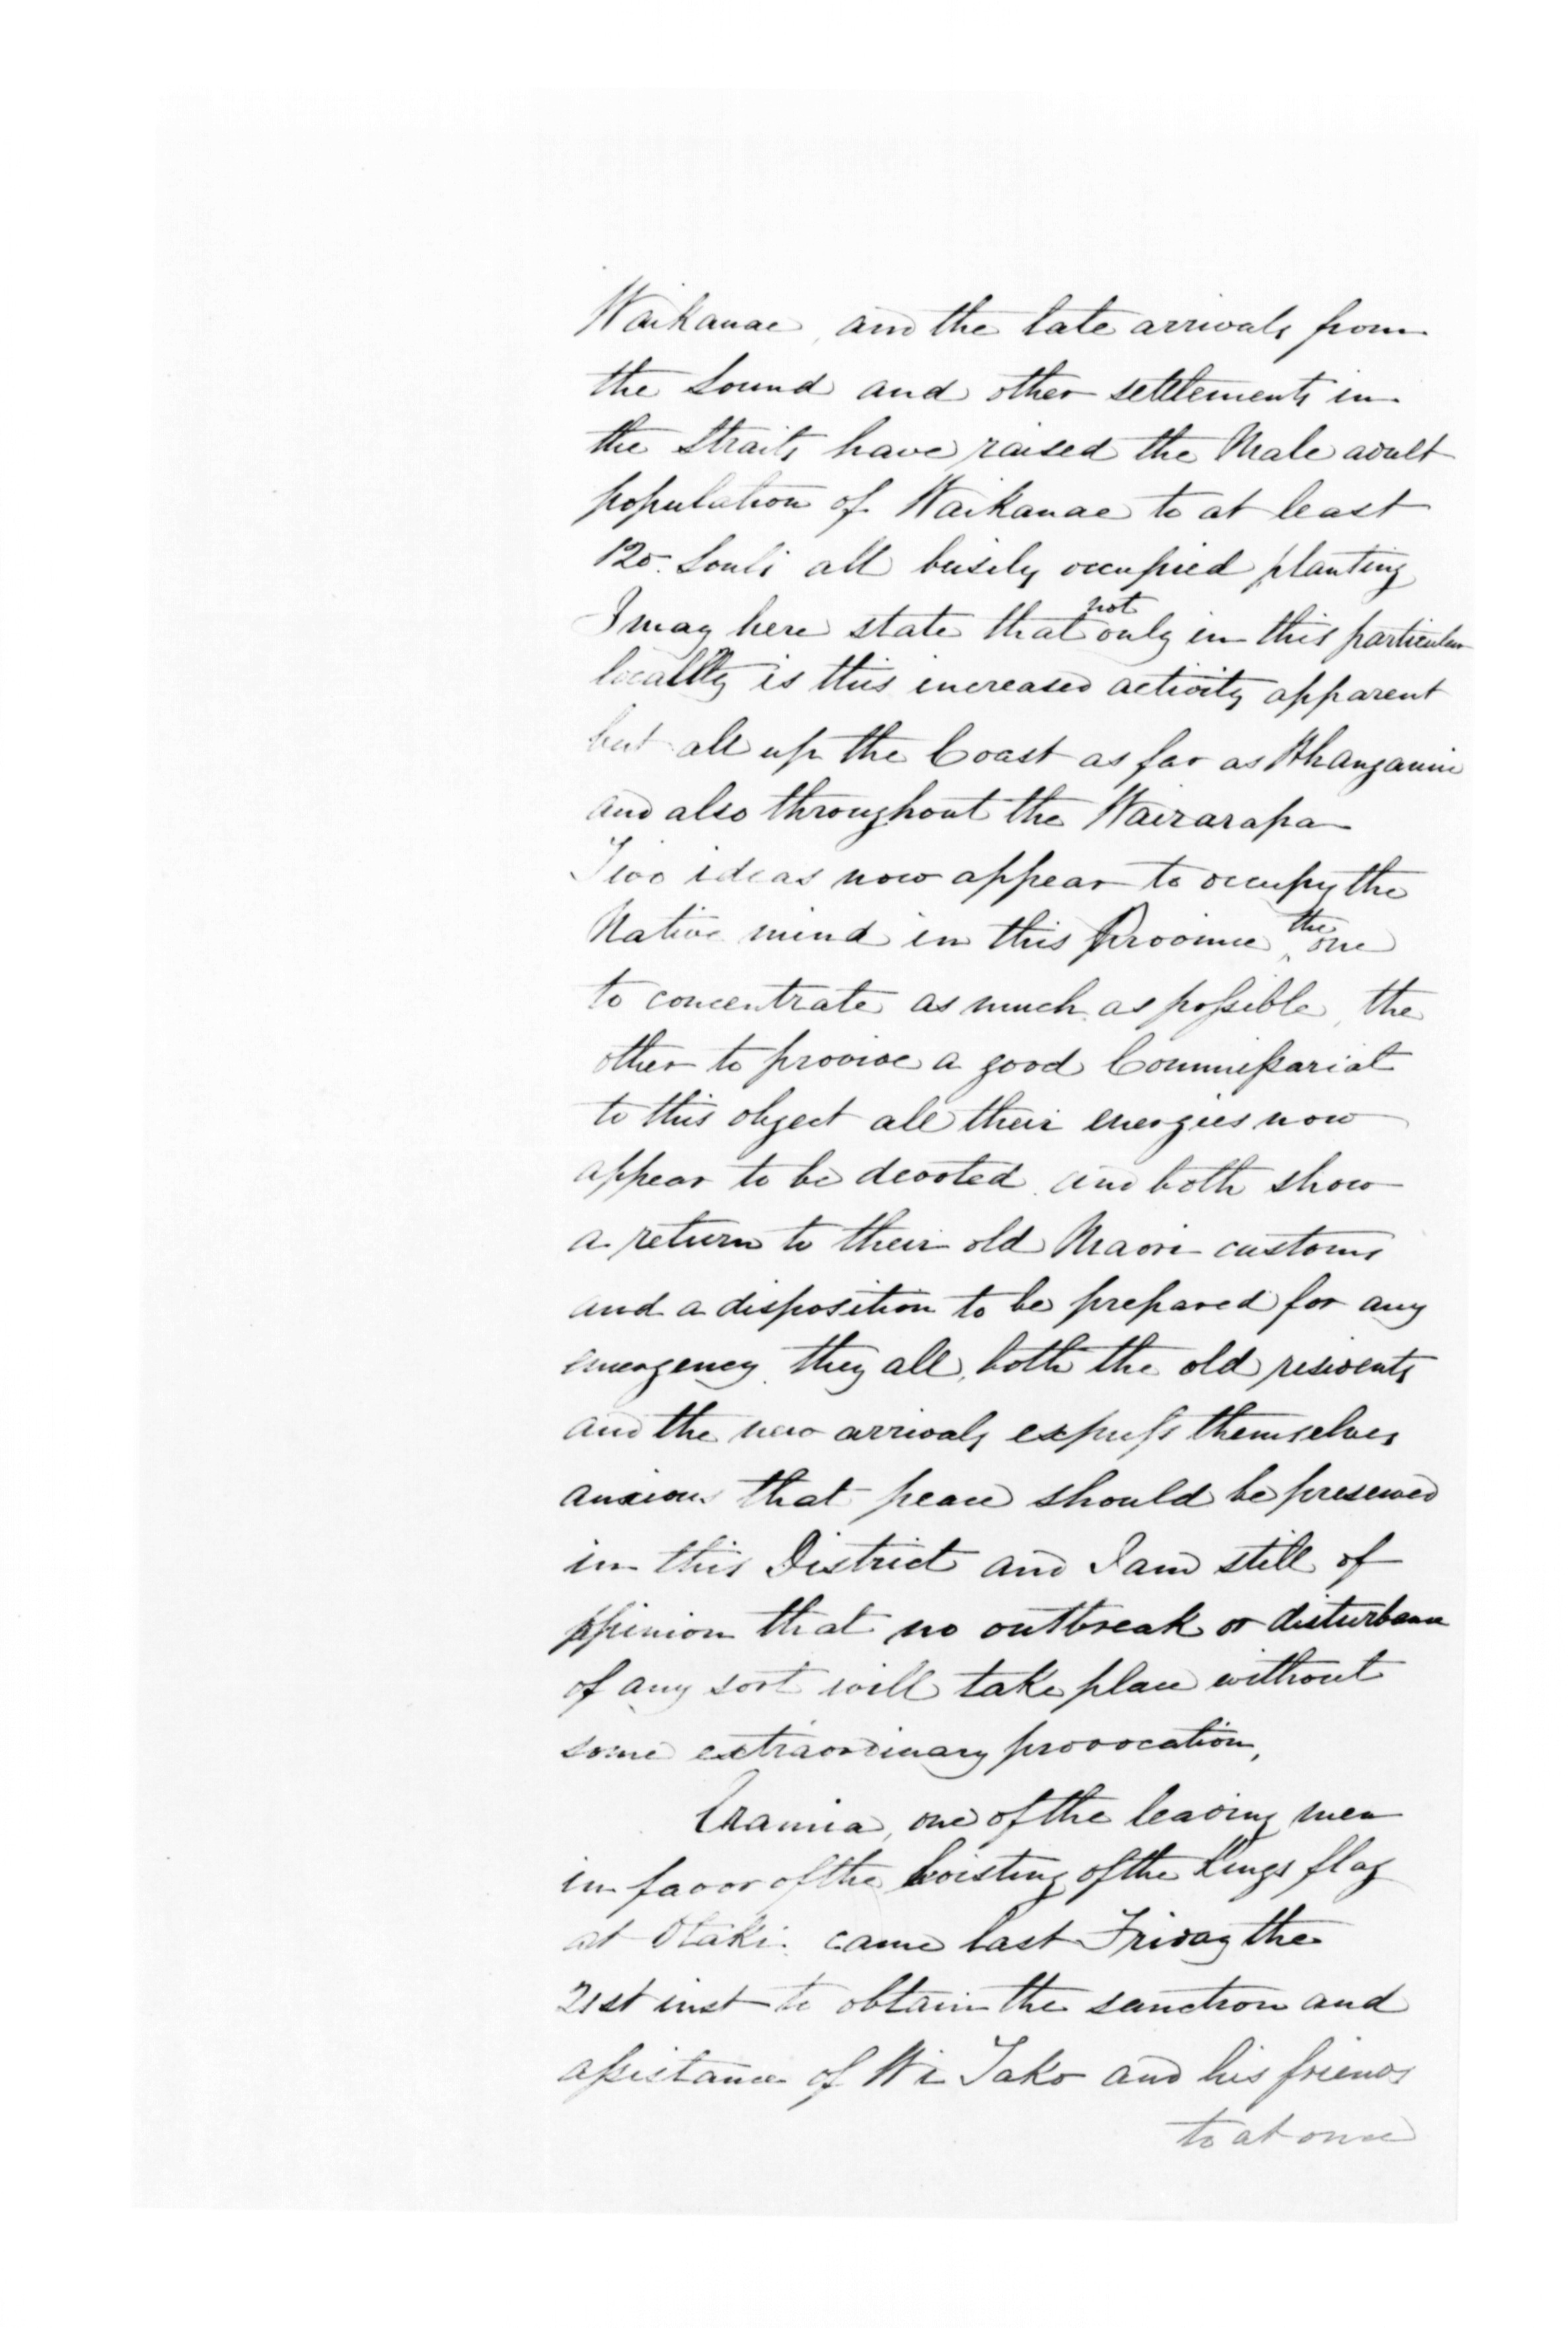 Waikanae, and the late arrivals from
the Sound and other settlements in
the Straits have raised the Male adult
population of Waikanae to at least
120. Souls all busily occupied planting
I may here state that not only in this particular
locallty is this increased activity apparent
but all up the Coast as far as Whanganui
and also throughout the Wairarapa
Two ideas now appear to occupy the
Native mind in this Province, the one
to concentrate as much as possible, the
other to provide a good Commissariat
to this object all their energies now
appear to be devoted and both show
a return to their old Maori customs
and a disposition to be prepared for any
emergency. they all, both the old residents
and the new arrivals express themselves
anxious that peace should be preserved
in this District and I am still of
opinion that no outbreak or disturbance
of any sort will take place without
some extraordinary provocation,
one of the leading men
in favor of the hoisting of the Kings flag
at Otaki. came last Friday the
21st inst to obtain the sanction and
assistance of Wi Tako and his friends
to at once